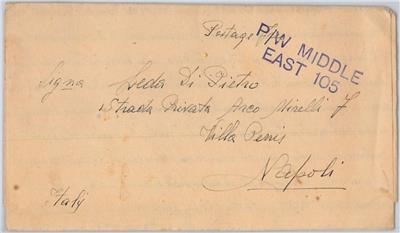 Postage Free
P/W MIDDLE
EAST 105
Signa Leda Di Pietro
Strada Privata Arco Mirelli 7
Villa Penis
Napoli
Italy